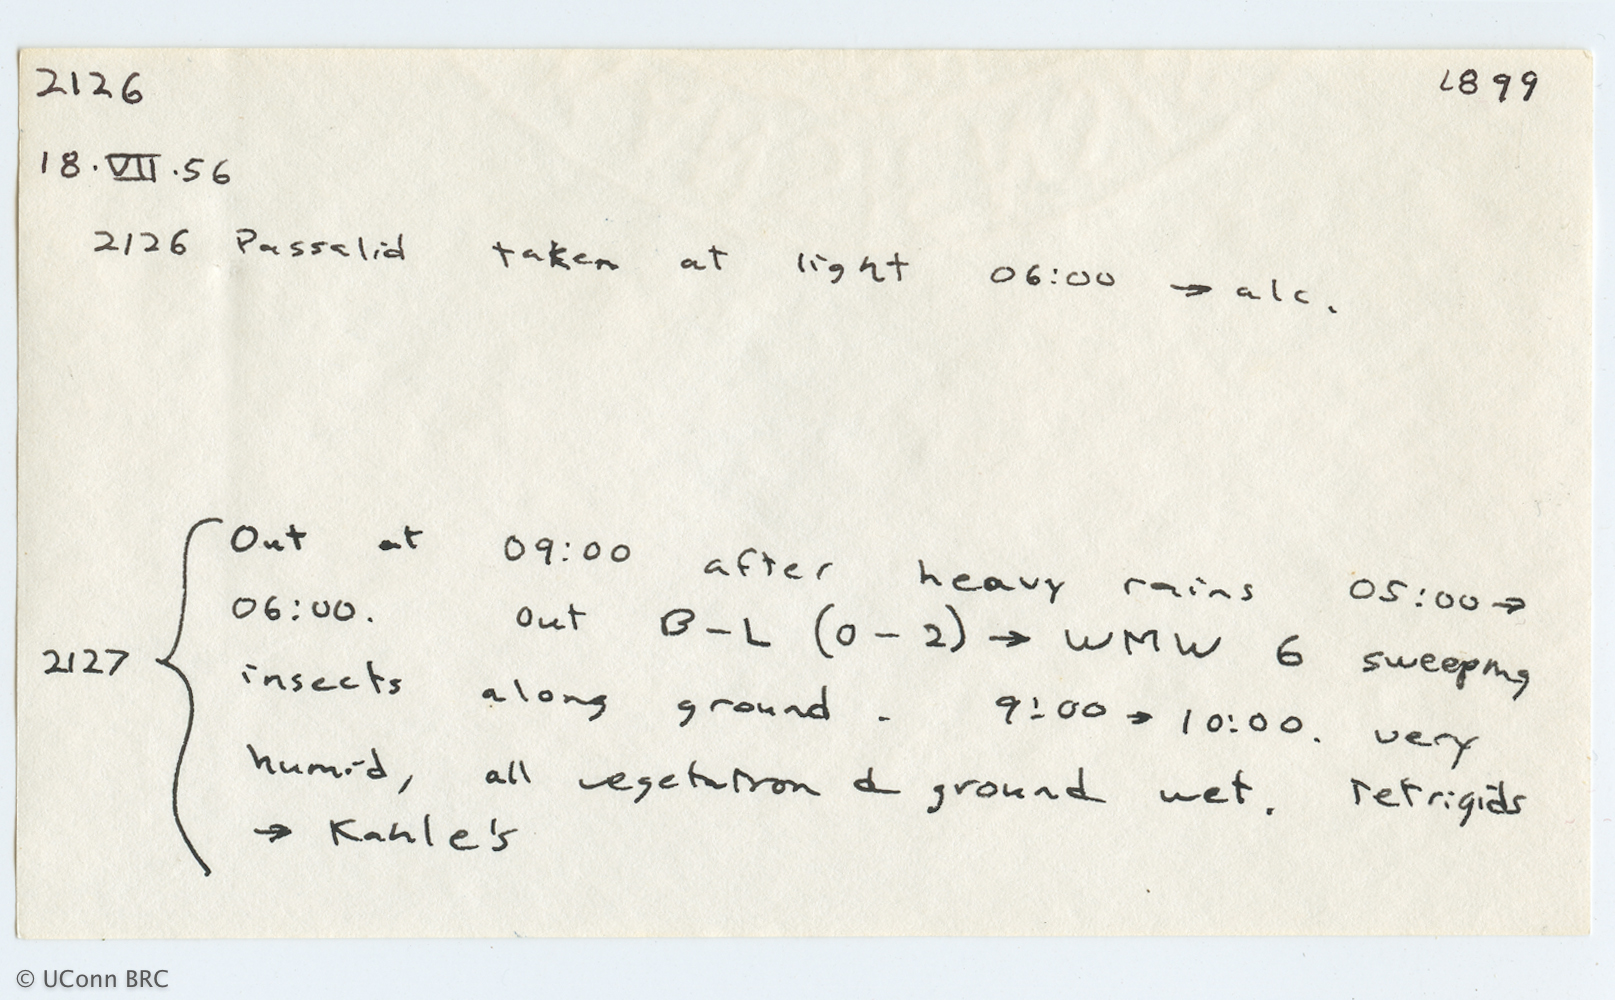 2126 1899
18.VII.56
2126 Passalid taken at light 06:00 → alc.
Out at 09:00 after heavy rains 05:00→
06:00. Out B-L (0-2) → WMW 6 sweeping
2127
insects along ground. 9:00 → 10:00. very
humid, all vegetation & ground wet. Tetrigids
→ Kahle's
© UConn BRC